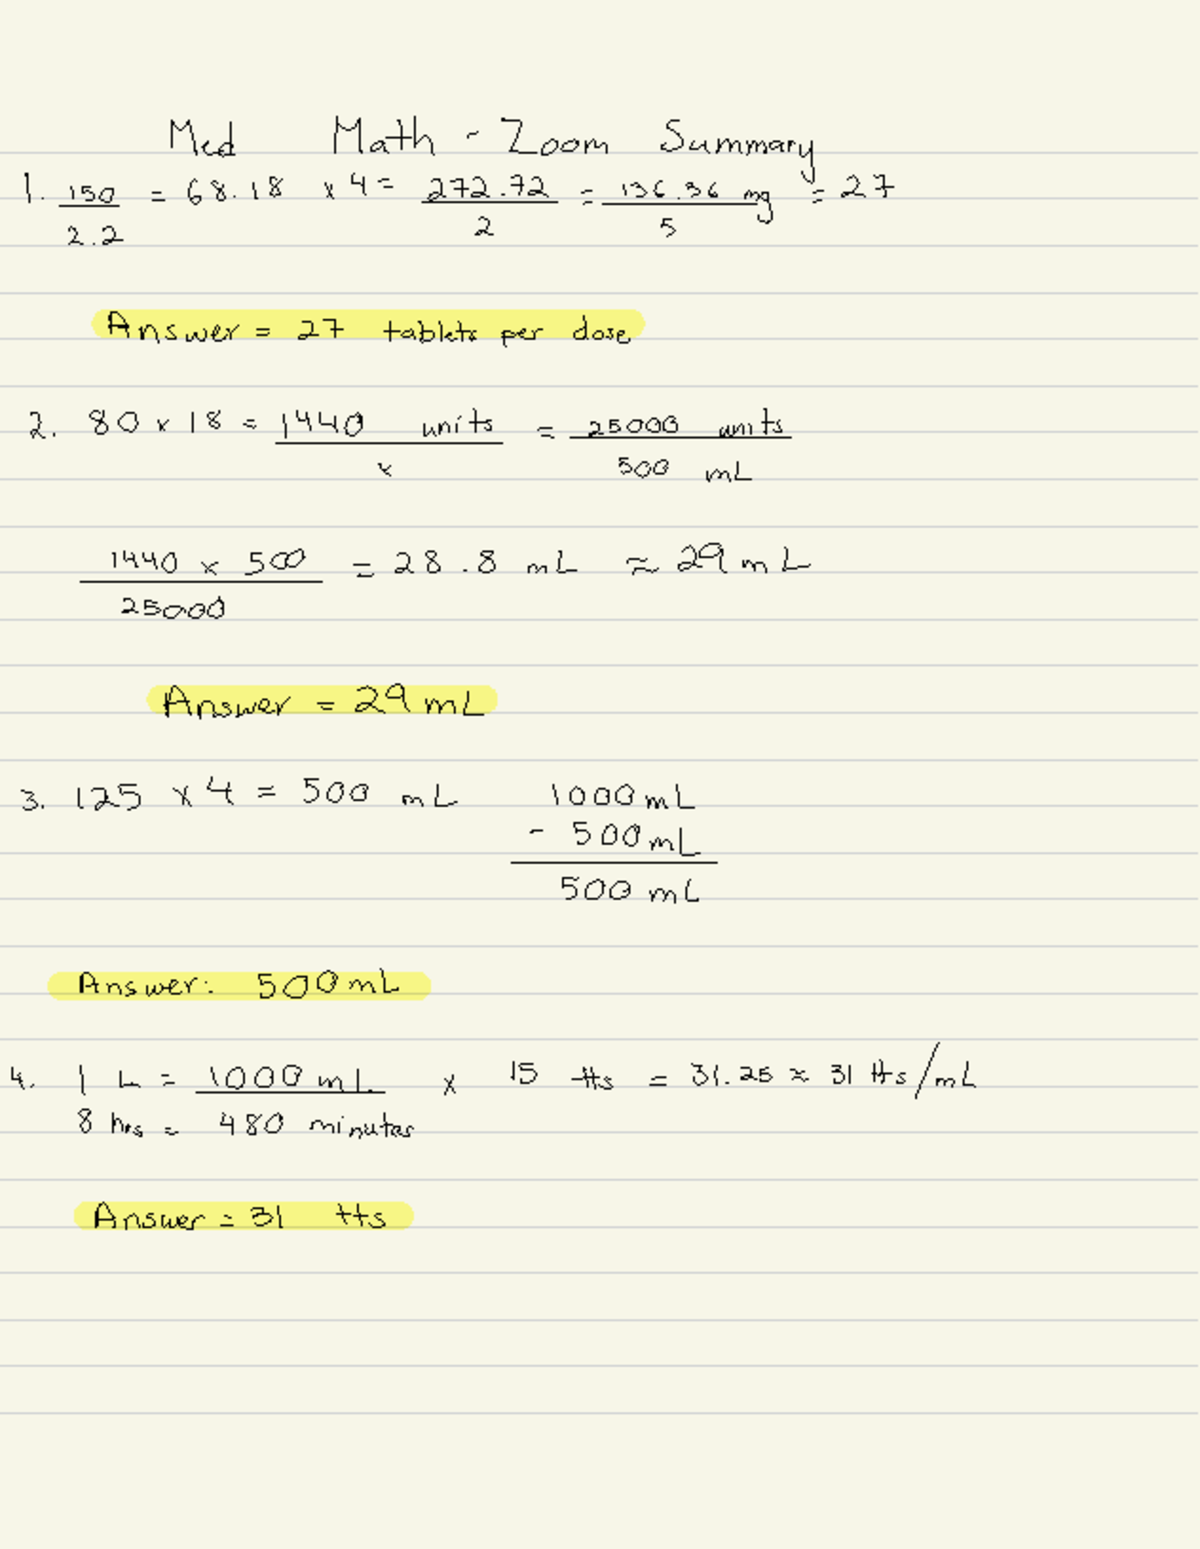 Med Math - Zoom Summary
1. 150/2.2 = 68.18 x 4 = 272.72/2 = 136.36 mg/5 = 27
Answer = 27 tablets per dose
2. 80 x 18 = 1440 units/x = 25000 units/500 mL
1440 x 500/25000 = 28.8 mL ≈ 29 mL
Answer = 29 mL
3. 125 x 4 = 500 mL 1000 mL
- 500 mL
500 mL
Answer: 500 mL
4. 1 L = 1000 mL x 15 tts = 31.25 ≈ 31 tts/mL
8 hrs = 480 minutes
Answer = 31 tts